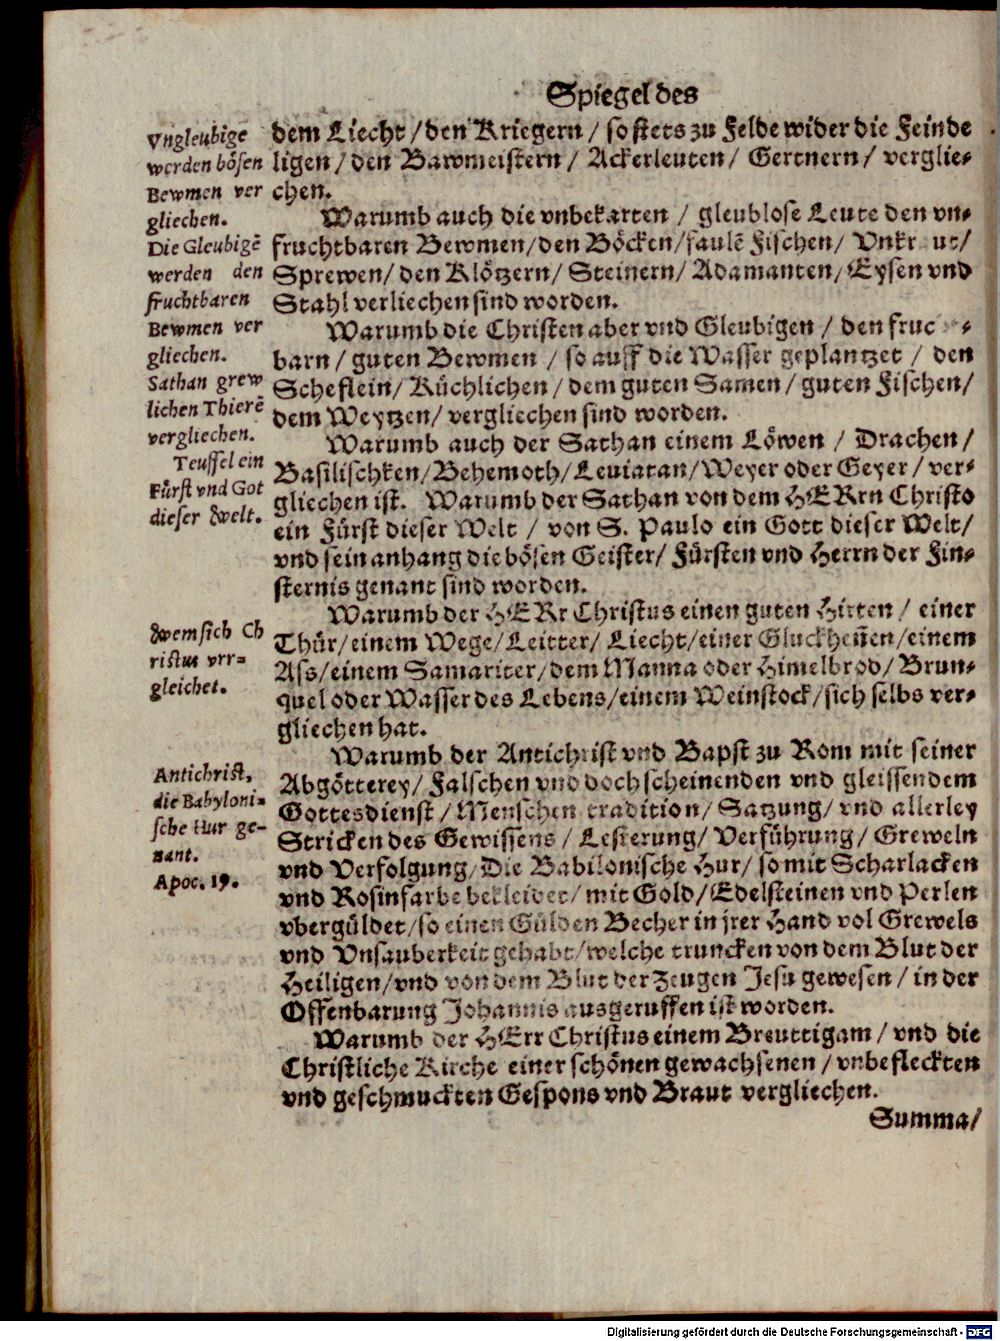 Spiegel des
Vngleubige
werden bösen
Bewmen ver
gliechen.
Die Gleubigē
werden den
fruchtbaren
Bewmen ver
gliechen.
Sathan grew
lichen Thierē
vergliechen.
Teuffel ein
Fürst vnd Got
dieser Welt.
Wem sich Ch
ristus ver=
gleichet.
Antichrist,
die Babyloni=
sche Hur ge=
nant.
Apoc. 19.
dem Liecht / den Kriegern / so stets zu Felde wider die Feinde
ligen / den Bawmeistern / Ackerleuten / Gertnern / verglie=
chen.
Warumb auch die vnbekarten / gleublose Leute den vn=
fruchtbaren Bewmen/den Böcken/faulē Fischen/ Vnkraut/
Sprewen/ den Klötzern/ Steinern/ Adamanten/ Eysen vnd
Stahl verliechen sind worden.
Warumb die Christen aber vnd Gleubigen / den
barn / guten Bewmen / so auff die Wasser geplantzet / den
Scheflein/ Küchlichen / dem guten Samen / guten Fischen/
dem Weytzen/ vergliechen sind worden.
Warumb auch der Sathan einem Löwen / Drachen /
Basilischken/Behemoth/Leuiatan/Weyer oder Geyer / ver=
gliechen ist. Warumb der Sathan von dem HERrn Christo
ein Fürst dieser Welt / von S. Paulo ein Gott dieser Welt/
vnd sein anhang die bösen Geister/ Fürsten vnd Herrn der Fin=
sternis genant sind worden.
Warumb der HERr Christus einen guten Hirten / einer
Thür/einem Wege/Leitter/ Liecht/einer Gluckheñen/einem
Ass/einem Samariter/dem Manna oder Himelbrod/ Brun=
quel oder Wasser des Lebens/einem Weinstock/sich selbs ver=
gliechen hat.
Warumb der Antichrist vnd Bapst zu Rom mit seiner
Abgötterey/ Falschen vnd doch scheinenden vnd gleissendem
Gottesdienst / Menschen tradition / Satzung/ vnd allerley
Stricken des Gewissens / Lesterung/ Verführung/ Greweln
vnd Verfolgung/Die Babilonische Hur/ so mit Scharlacken
vnd Rosinfarbe bekleidet/ mit Gold/Edelsteinen vnd Perlen
vbergüldet/so einen Gülden Becher in jrer Hand vol Grewels
vnd Vnsauberkeit gehabt/welche truncken von dem Blut der
Heiligen/vnd von dem Blut der Zeugen Jesu gewesen / in der
Offenbarung Johannis ausgeruffen ist worden.
Warumb der HErr Christus einem Breuttigam / vnd die
Christliche Kirche einer schönen gewachsenen / vnbefleckten
vnd geschmuckten Gespons vnd Braut vergliechen.
Summa/
Digitalisierung gefördert durch die Deutsche Forschungsgemeinschaft - DFG